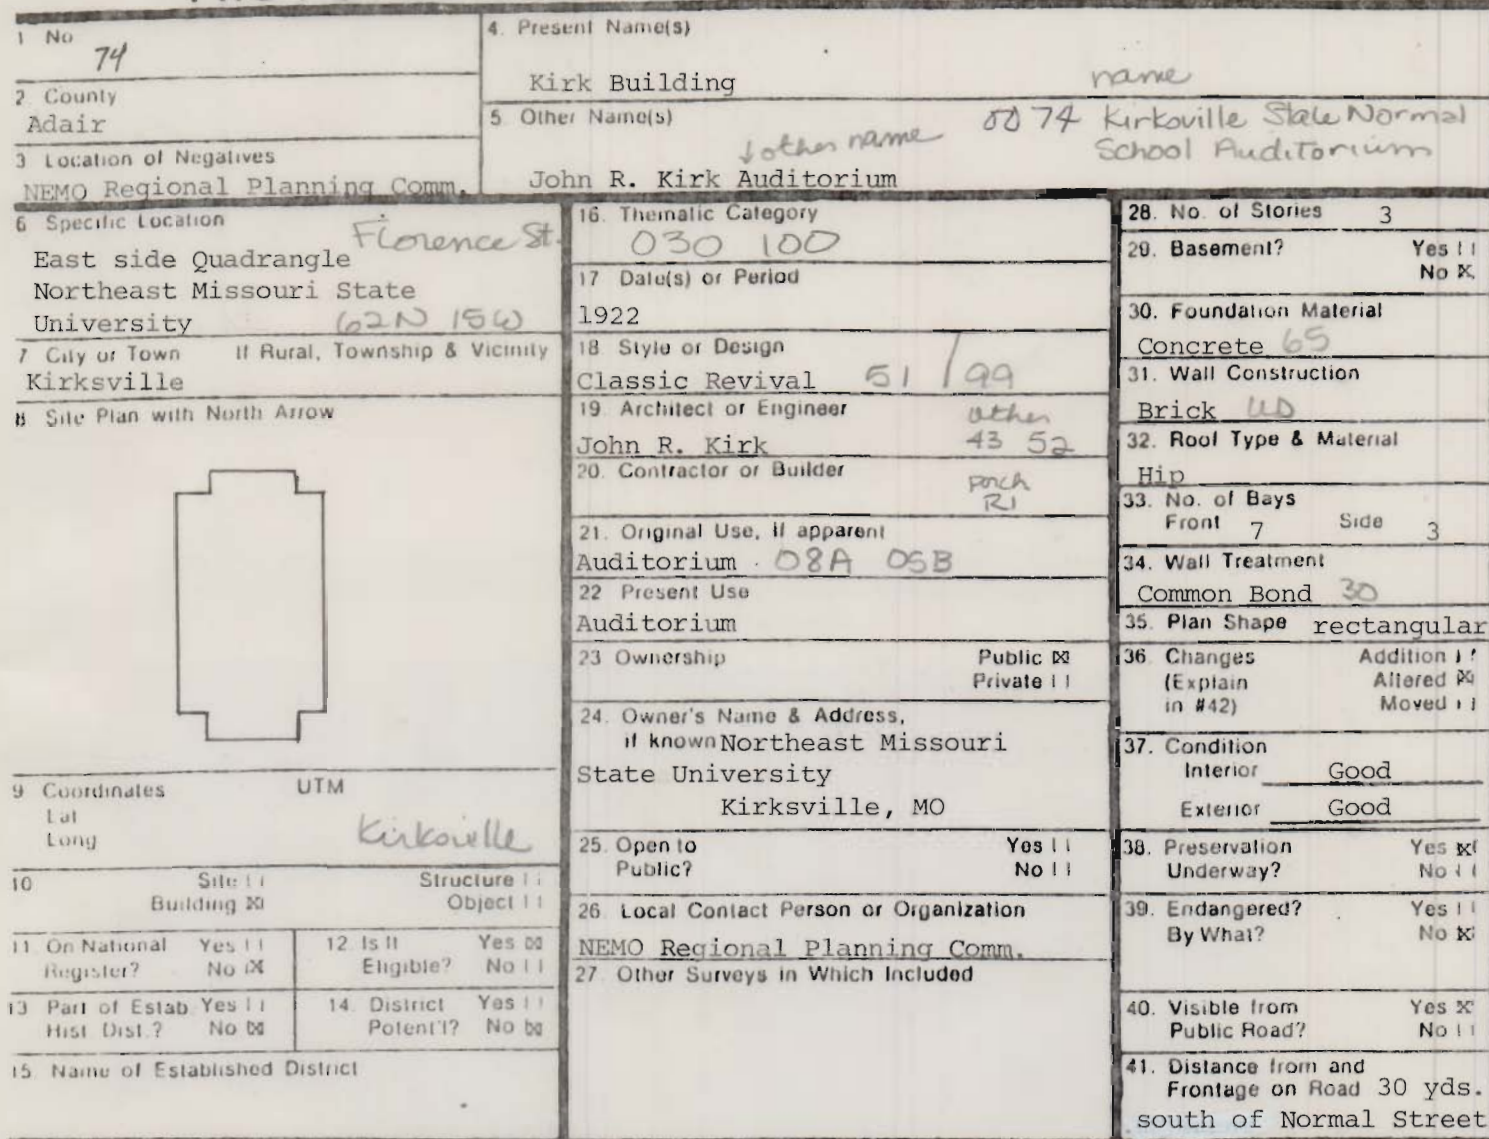 1 No
74
2 County
Adair
3 Location of Negatives
NEMO Regional Planning Comm.
4. Present Name(s)
Kirk Building
name
5. Other Name(s)
↓other name
0074 Kirksville State Normal
School Auditorium
John R. Kirk Auditorium
6 Specific Location
Florence St.
East side Quadrangle
Northeast Missouri State
University 62N 15W
7 City or Town If Rural, Township & Vicinity
Kirksville
8 Site Plan with North Arrow
9 Coordinates UTM
Lat
Long
Kirksville
10 Site Structure
Building ☒ Object
11 On National Yes
Register? No ☒
12 Is It Yes ☒
Eligible? No
13 Part of Estab Yes
Hist Dist.? No ☒
14. District Yes
Potent'l? No ☒
15 Name of Established District
16. Thematic Category
030 100
17 Date(s) or Period
1922
18 Style or Design
Classic Revival 51 / 99
19 Architect or Engineer
other
John R. Kirk 43 52
20. Contractor or Builder
porch
R1
21. Original Use, if apparent
Auditorium 08A 05B
22 Present Use
Auditorium
23 Ownership Public ☒
Private
24. Owner's Name & Address,
if known Northeast Missouri
State University
Kirksville, MO
25. Open to Yes
Public? No
26 Local Contact Person or Organization
NEMO Regional Planning Comm.
27 Other Surveys in Which Included
28. No. of Stories 3
29. Basement? Yes
No ☒
30. Foundation Material
Concrete 65
31. Wall Construction
Brick UD
32. Roof Type & Material
Hip
33. No. of Bays
Front 7 Side 3
34. Wall Treatment
Common Bond 30
35. Plan Shape rectangular
36 Changes Addition
(Explain Altered ☒
in #42) Moved
37. Condition
Interior Good
Exterior Good
38. Preservation Yes ☒
Underway? No
39. Endangered? Yes
By What? No ☒
40. Visible from Yes ☒
Public Road? No
41. Distance from and
Frontage on Road 30 yds.
south of Normal Street